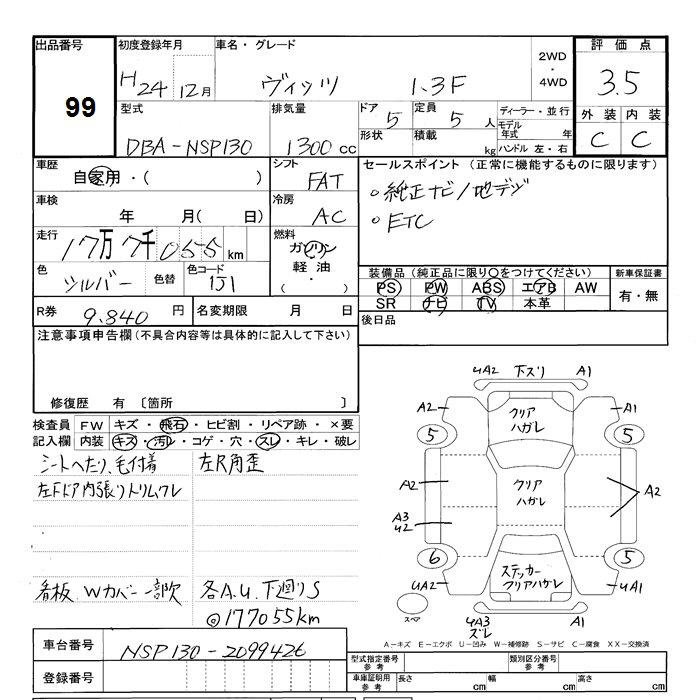 出品番号 初度登録年月 車名・グレード 2WD・4WD 評価点
99 H24 12月 ヴィッツ 1.3F 3.5
型式 排気量 ドア 5 定員 5人 ディーラー・並行 外装 内装
DBA-NSP130 1300cc 形状 積載 kg モデル年式 年 C C
ハンドル 左・右
車歴 シフト セールスポイント (正常に機能するものに限ります)
自家用・( ) FAT ○純正ナビ/地デジ
車検 冷房 ○ETC
年 月( 日) AC
走行 燃料
17万7千055km ガソリン
軽油・
( ・ )
色 色替 色コード 装備品(純正品に限り○をつけてください) 新車保証書
シルバー 1J1 PS PW ABS エアB AW 有・無
SR ナビ TV 本革
R券 9.840円 名変期限 月 日 後日品
注意事項申告欄(不具合内容等は具体的に記入して下さい)
修復歴 有 〔箇所 〕
検査員 FW キズ・飛石・ヒビ割・リペア跡・×要
記入欄 内装 キズ・汚レ・コゲ・穴・スレ・キレ・破レ
シートへたり、毛付着 左R角歪
左Fドア内張りトリムワレ
看板、Wカバー一部欠 各A.U.下廻りS
◎177055km
UA2 下ズリ A1
A2 クリアハガレ A1
5 5
A2 クリアハガレ A2
A3
U2
6 ステッカー クリアハガレ 5
UA2 UA1
スペア UA3 ズレ A1
A-キズ E-エクボ U-凹み W-補修跡 S-サビ C-腐食 XX-交換済
車台番号 NSP130-2099426
登録番号
型式指定番号 参考 類別区分番号 参考
車庫証明用 参考 長さ cm 幅 cm 高さ cm